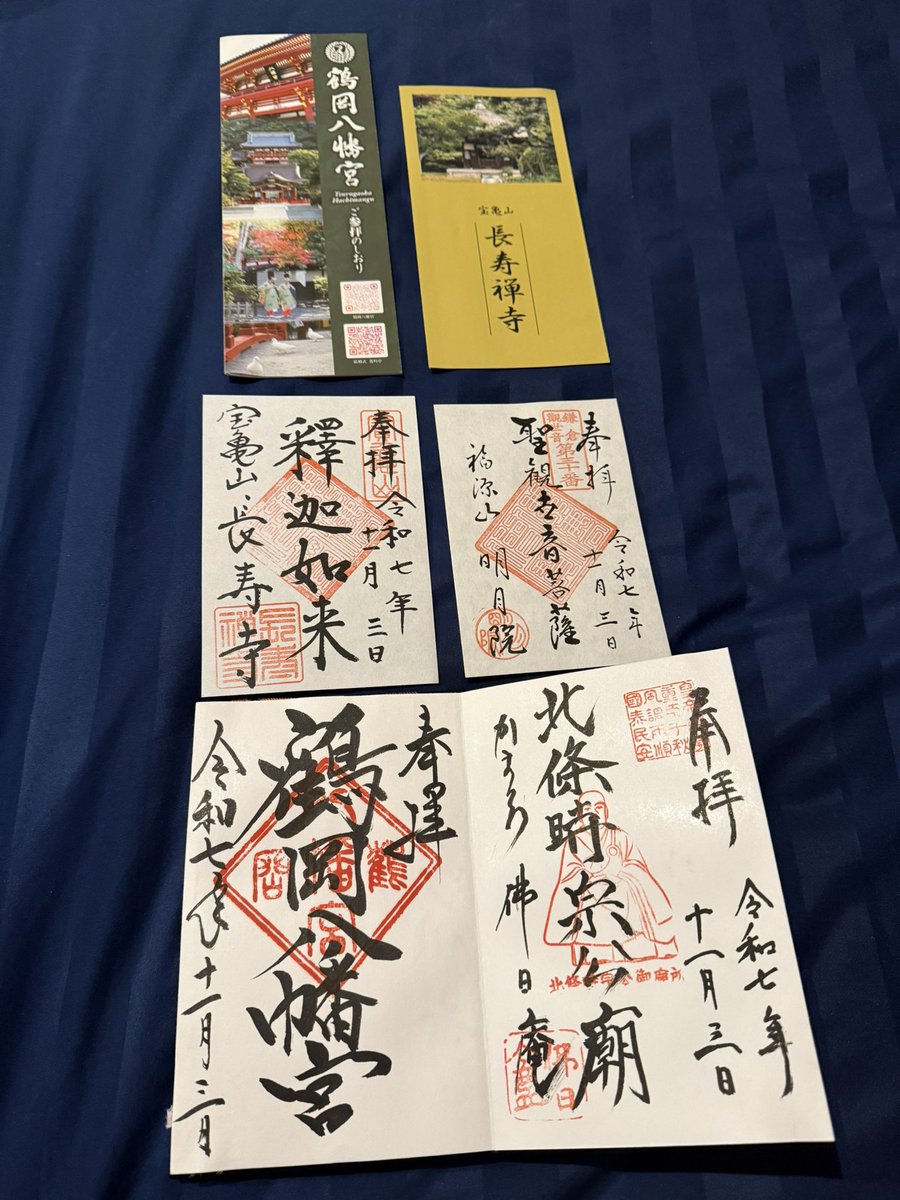 鶴岡八幡宮
Tsurugaoka
Hachimangu
ご参拝のしおり
宝亀山
長寿禅寺
奉拝
令和七年
十一月三日
釋迦如来
宝亀山長寿寺
奉拝
鎌倉
観世音
第三十番
令和七年
十一月三日
聖観世音菩薩
福源山
明月院
奉拝
令和七年
十一月三日
北條時宗公廟
かまくら
佛日庵
奉拝
鶴岡八幡宮
令和七年十一月三日